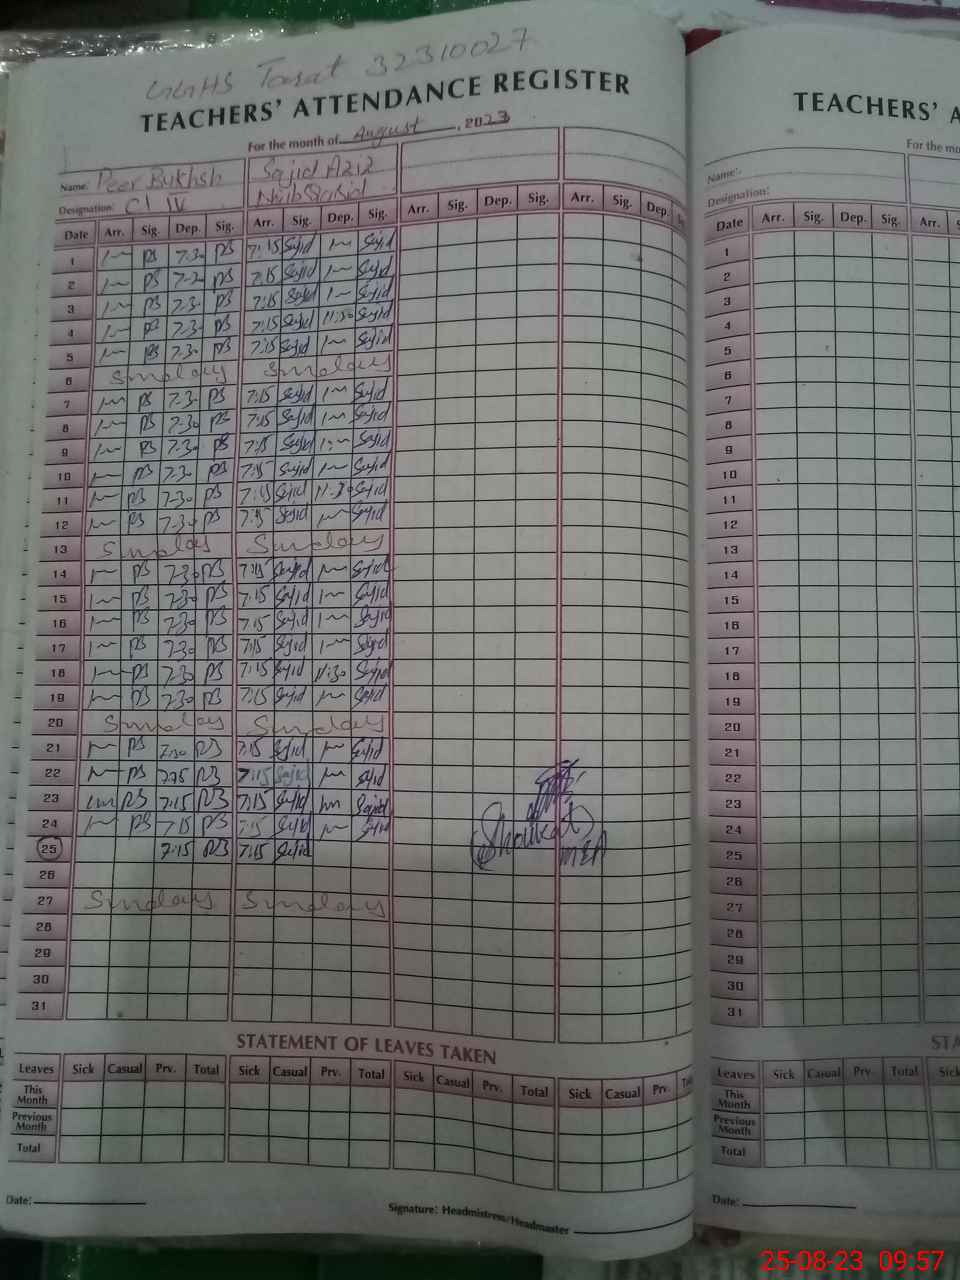 GGHS Tarat 32310027
TEACHERS' ATTENDANCE REGISTER
For the month of August, 2023
Name: Peer Bukhsh Sajid Aziz
Designation: Cl IV Naib Qasid
Date Arr. Sig. Dep. Sig. Arr. Sig. Dep. Sig. Arr. Sig. Dep. Sig. Arr. Sig. Dep.
1 1~ PB 7.30 PB 7:15 Sajid 1~ Sajid
2 1~ PB 7.30 PB 7:15 Sajid 1~ Sajid
3 1~ PB 7.30 PB 7:15 Sajid 1~ Sajid
4 1~ PB 7.30 PB 7:15 Sajid 11:30 Sajid
5 1~ PB 7.30 PB 7:15 Sajid 1~ Sajid
6 Sunday Sunday
7 1~ PB 7.30 PB 7:15 Sajid 1~ Sajid
8 1~ PB 7.30 PB 7:15 Sajid 1~ Sajid
9 1~ PB 7.30 PB 7:15 Sajid 1:~ Sajid
10 1~ PB 7.30 PB 7:15 Sajid 1~ Sajid
11 1~ PB 7.30 PB 7:15 Sajid 11:30 Sajid
12 1~ PB 7.30 PB 7:15 Sajid 1~ Sajid
13 Sunday Sunday
14 1~ PB 7.30 PB 7:15 Sajid 1~ Sajid
15 1~ PB 7.30 PB 7:15 Sajid 1~ Sajid
16 1~ PB 7.30 PB 7:15 Sajid 1~ Sajid
17 1~ PB 7.30 PB 7:15 Sajid 1~ Sajid
18 1~ PB 7.30 PB 7:15 Sajid 11:30 Sajid
19 1~ PB 7.30 PB 7:15 Sajid 1~ Sajid
20 Sunday Sunday
21 1~ PB 7.30 PB 7:15 Sajid 1~ Sajid
22 1~ PB 7.15 PB 7:15 Sajid 1~ Sajid
23 1~ PB 7:15 PB 7:15 Sajid 1~ Sajid
24 1~ PB 7:15 PB 7:15 Sajid 1~ Sajid
25 7:15 PB 7:15 Sajid
(Shoukat)
MEA
26
27 Sunday Sunday
28
29
30
31
STATEMENT OF LEAVES TAKEN
Leaves Sick Casual Prv. Total Sick Casual Prv. Total Sick Casual Prv. Total Sick Casual Prv.
This Month
Previous Month
Total
Date:
Signature: Headmistress/Headmaster
TEACHERS'
For the
Name:
Designation:
Date Arr. Sig. Dep. Sig. Arr.
1
2
3
4
5
6
7
8
9
10
11
12
13
14
15
16
17
18
19
20
21
22
23
24
25
26
27
28
29
30
31
Leaves Sick Casual Prv. Total Sick
This Month
Previous Month
Total
Date:
25-08-23 09:57